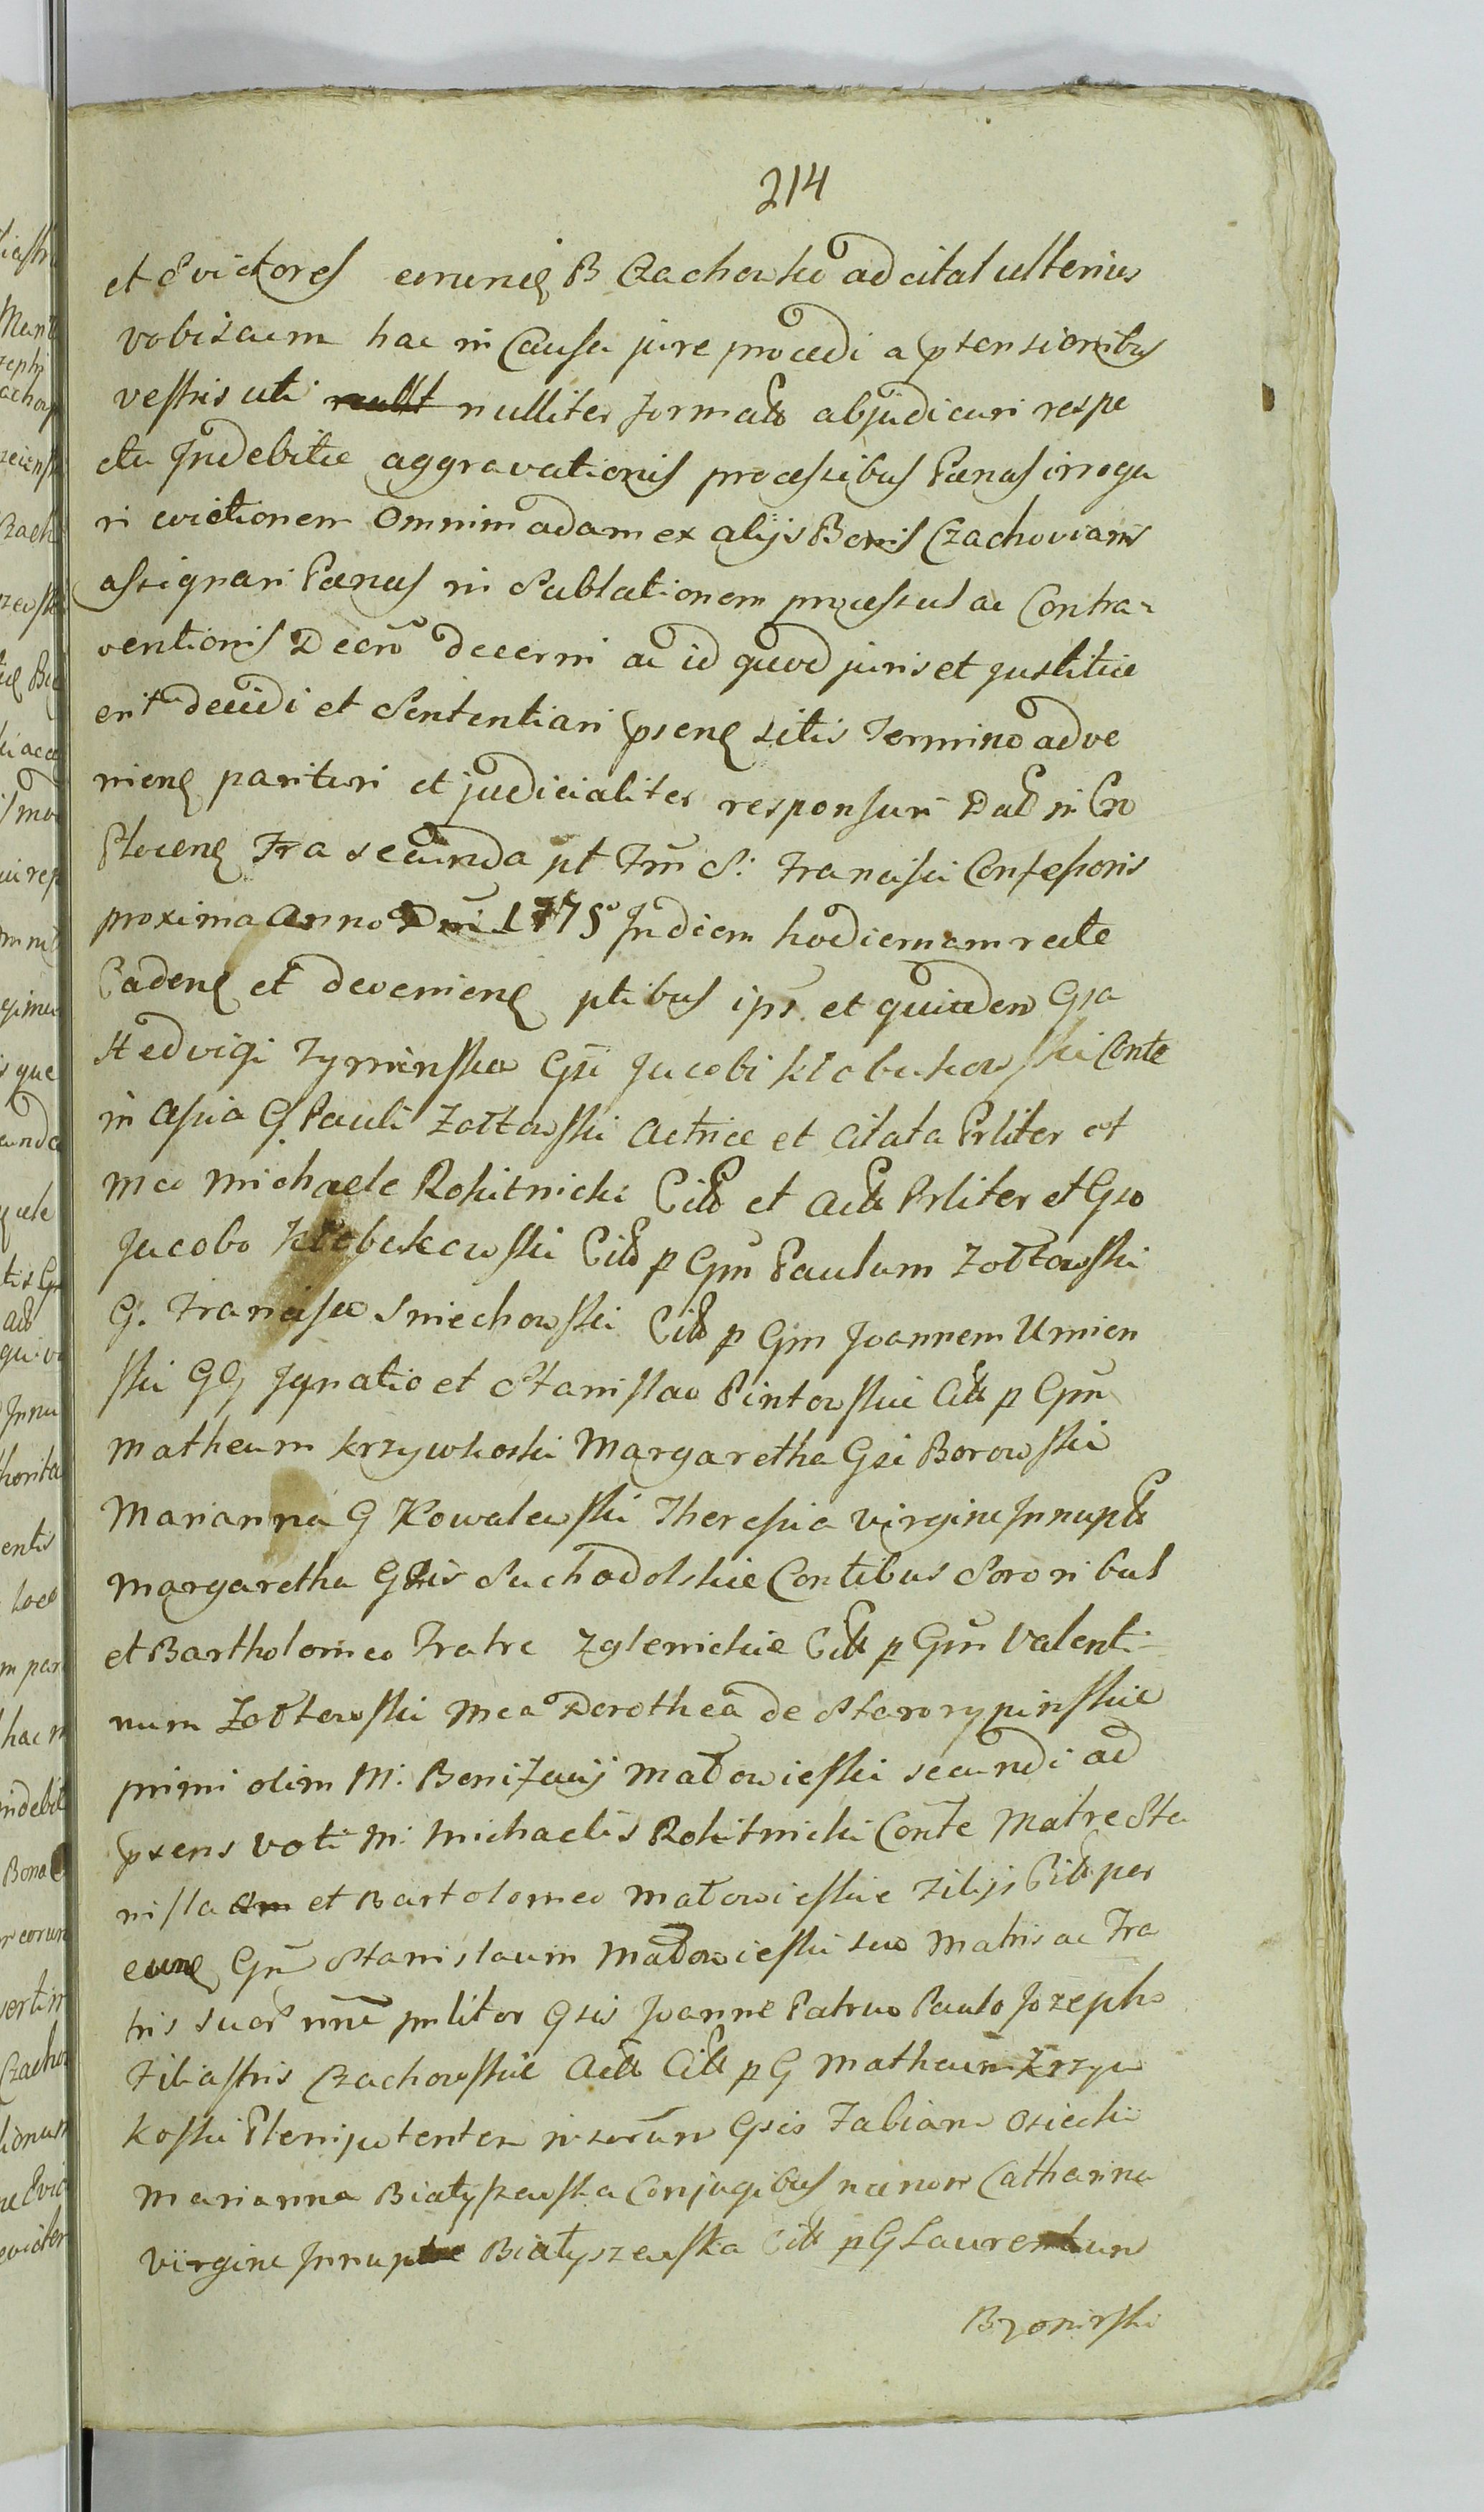 214
et Evictores eorunq B Czachowsko adcitat ulterius
vobiscum hac in Causa jure procedi a ptensionibus
vestris uti null nulliter formatis abjudicari respe
ctu Indebitæ aggravationis processibus Pænas irroga
ri evictionem Omnimodam ex alijs Bonis Czachovianis
assignari Pænas in Sublationem processus ac Contra-
ventionis Decrõ decerni ac id quod juris et justitiæ
erit decidi et Sententiari psenq sitis Termino adve
nienq parituri et judicialiter responsuri Dat in Cro
Plocenq Fra secunda pt Fm S: Francisci Confessoris
proxima Anno Dni 1775º In diem hodiernam recte
Cadenq et devenienq ptibus ips. et quidem Gsa
Hedvigi Tyminska Gsi Jacobi Kłobukowski Conte
in Assia G. Pauli Zołtowski Actrice et Citata Prliter et
Mco Michaele Rokitnicki Cito et Acto Prliter et Gso
Jacobo Kłobukowski Cito p Gsm Paulum Zołtowski
G. Francisco Smiechowski Cito p Gsm Joannem Umien
ski GG Ignatio et Stanislao Pintowskie Citis p Gsm
Matheum Krzywkoski Margaretha Gsi Borowski
Marianna G Kowalewski Theresia virgine Innupta
Margaretha Gsis Suchodolskie Contibus Sororibus
et Bartholomeo Fratre Zglenickie Citis p Gsm Valenti-
num Zołtowski Mca Dorothea de Starorypinskie
primi olim M: Bonifacij Małowieski secundi ad
psens voti M: Michaelis Rokitnicki Conte Matre Sta
nislao et Bartolomeo Małowieskie Filijs Citis per
eunq Gsm Stanislaum Małowieski suo Matris ac Fra
tris suor nne prliter Gsis Joanne Patruo Paulo Jozepho
Filiastris Czachowskie Actis Citis p G Matheum Krzyw
koski Plenipotentem ipsorum Gsis Fabiano Osiecki
Marianna Białyszewska Conjugibus necnon Catharina
virgine Innupta Białyszewska Citis p G Laurentium
Bromirski